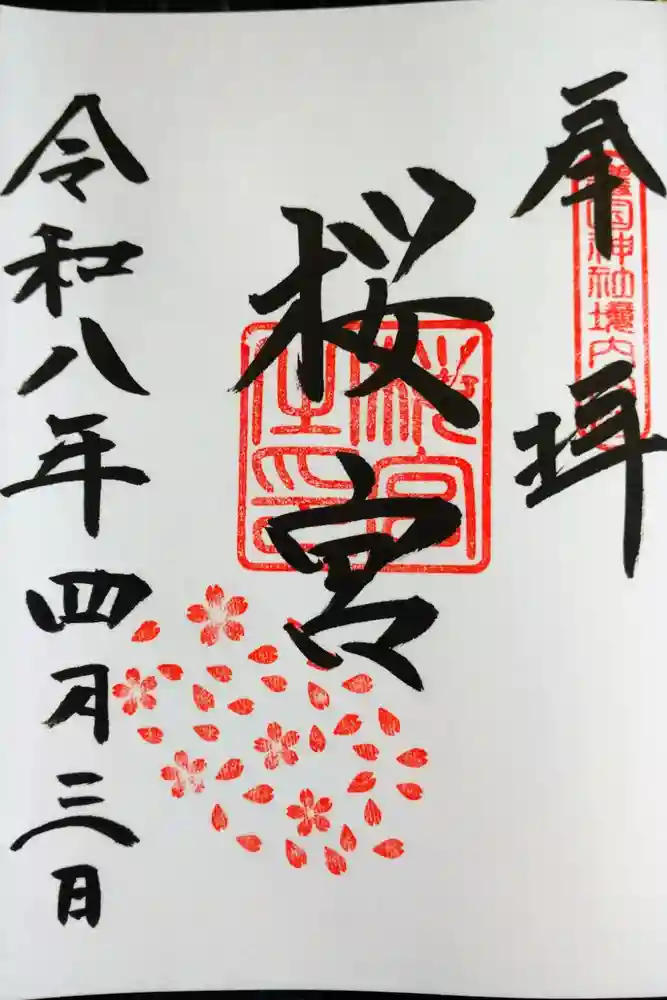 奉拝
護国神社境内
桜宮
桜宮
之印
令和八年四月三日